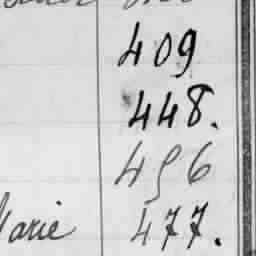 409
448.
456
Marie 477.